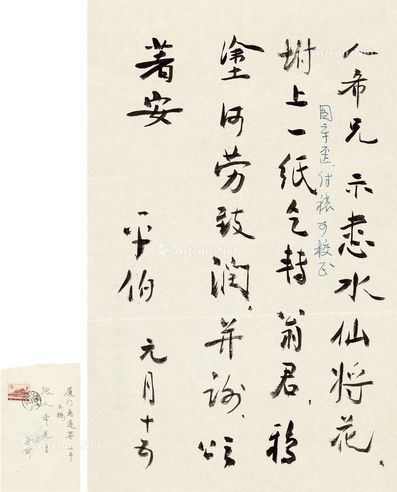 人希兄示悉水仙将花、
坿上一纸乞转翁君,鴉
圆章歪,付裱可校正
塗何劳致润,并谢,颂
著安
平伯 元月十
张人希先生
厦门
Artron.Net